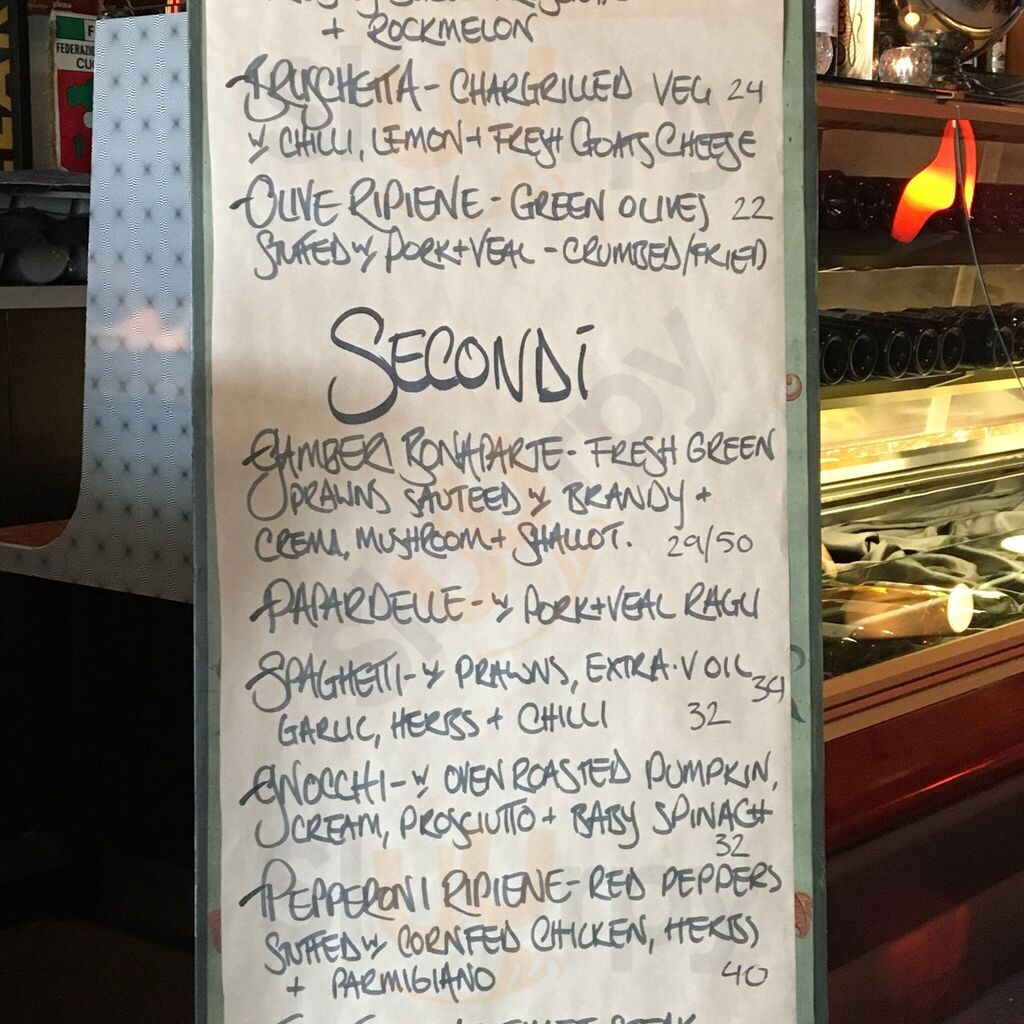 + ROCKMELON
BRUSCHETTA - CHARGRILLED VEG 24
w CHILLI, LEMON + FRESH GOATS CHEESE
OLIVE RIPIENE - GREEN OLIVES 22
STUFFED w PORK + VEAL - CRUMBED/FRIED
SECONDI
GAMBERI BONAPARTE - FRESH GREEN
PRAWNS SAUTEED w BRANDY +
CREMA, MUSHROOM + SHALLOT. 29/50
PAPARDELLE - w PORK + VEAL RAGU
34
SPAGHETTI - w PRAWNS, EXTRA·V OIL
GARLIC, HERBS + CHILLI 32
GNOCCHI - w OVEN ROASTED PUMPKIN,
CREAM, PROSCIUTTO + BABY SPINACH
32
PEPPERONI RIPIENE - RED PEPPERS
STUFFED w CORNFED CHICKEN, HERBS
+ PARMIGIANO 40
FEDERAZIO
CUO